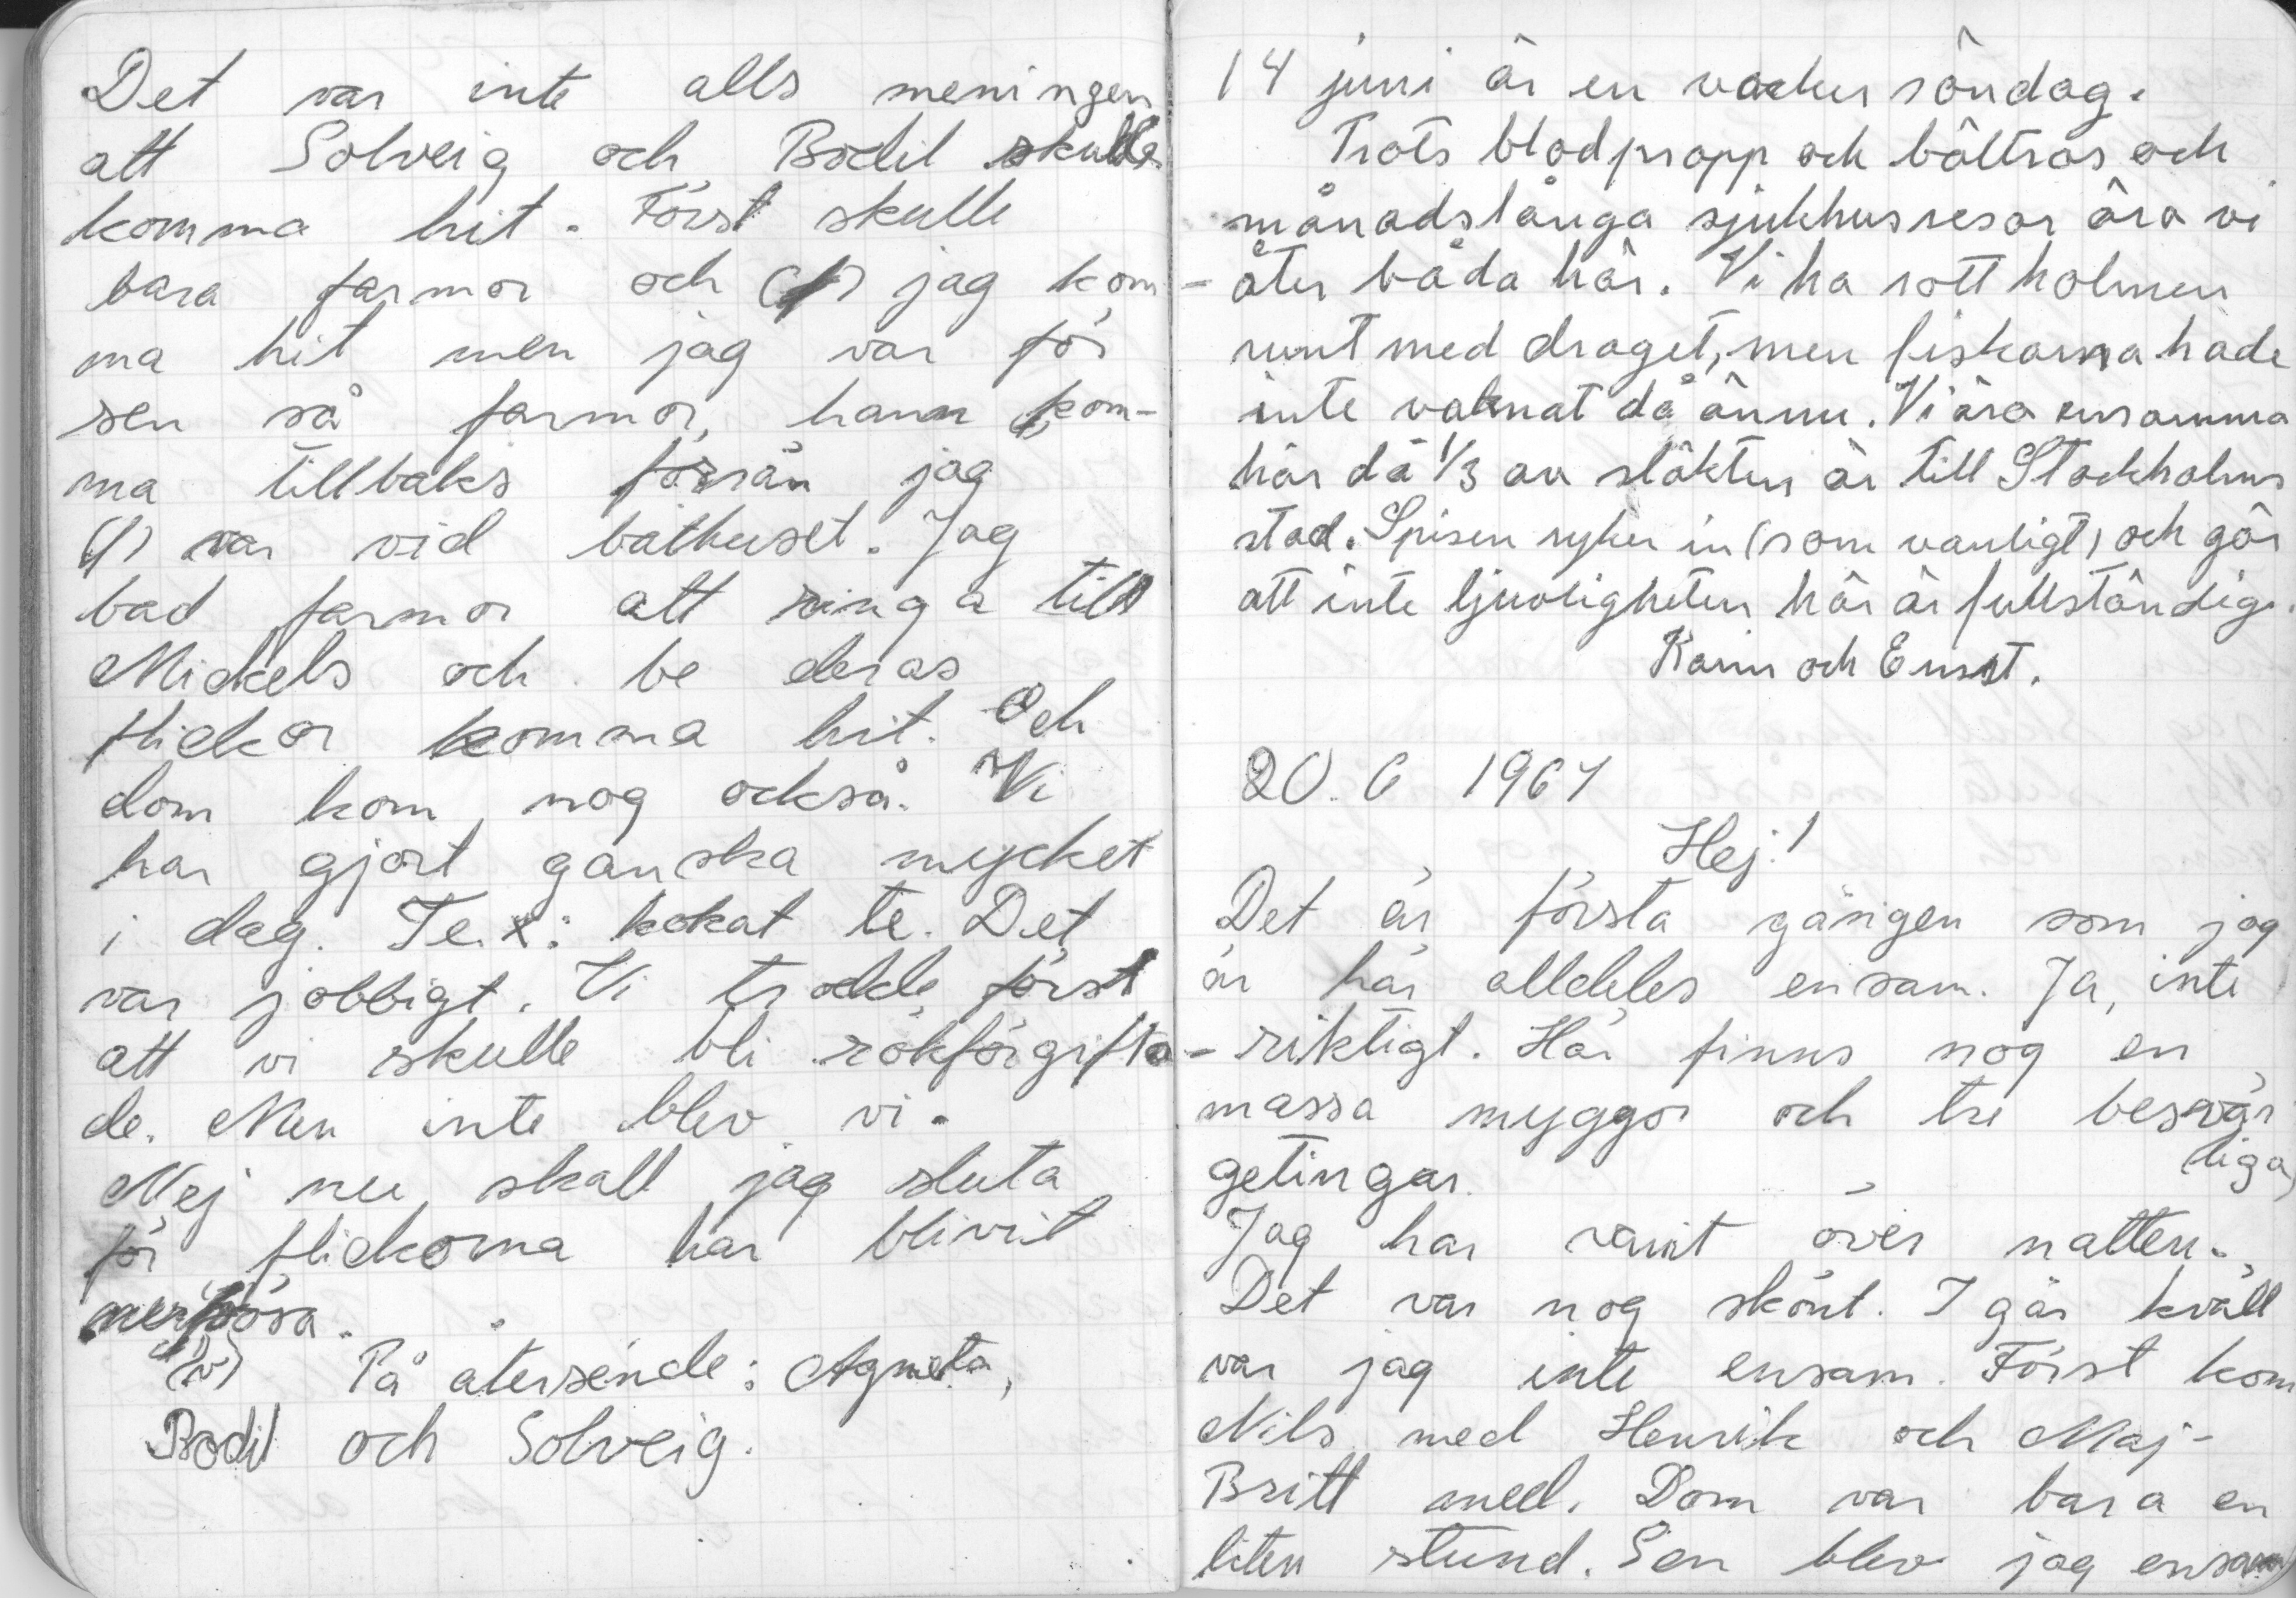 Det var inte alls meningen
att Solveig och Bodil skulle
komma hit. Först skulle
bara farmor och (f) jag kom
ma hit men jag var för
sen så farmor hann kom-
ma tillbaks förrän jag
(f) var vid båthuset. Jag
bad farmor att ringa till
Mickels och be deras
flickor komma hit. Och
dom kom nog också. Vi
har gjort ganska mycket
i dag. Te.x: kokat te. Det
var jobbigt. Vi trodde först
att vi skulle bli rökförgifta-
de. Men inte blev vi.
Nej nu skall jag sluta
för flickorna har blivit
nervösa.
(v) På återseende: Agneta,
Bodil och Solveig.
14 juni är en vacker söndag.
Trots blodpropp och bältros och
månadslånga sjukhusresor ära vi
åter båda här. Vi ha rott holmen
runt med draget, men fiskarna hade
inte vaknat då ännu. Vi ära ensamma
här då 1/3 av släkten är till Stockholms
stad. Spisen ryker in (som vanligt) och gör
att inte ljuvligheten här är fullständig.
Karin och Ernst.
20. 6 1964
Hej!
Det är första gången som jag
är här alldeles ensam. Ja, inte
riktigt. Här finns nog en
massa myggor och tre besvär
liga
getingar.
Jag har varit över natten.
Det var nog skönt. I går kväll
var jag inte ensam. Först kom
Nils med Henrik och Maj-
Britt med. Dom var bara en
liten stund. Sen blev jag ensam